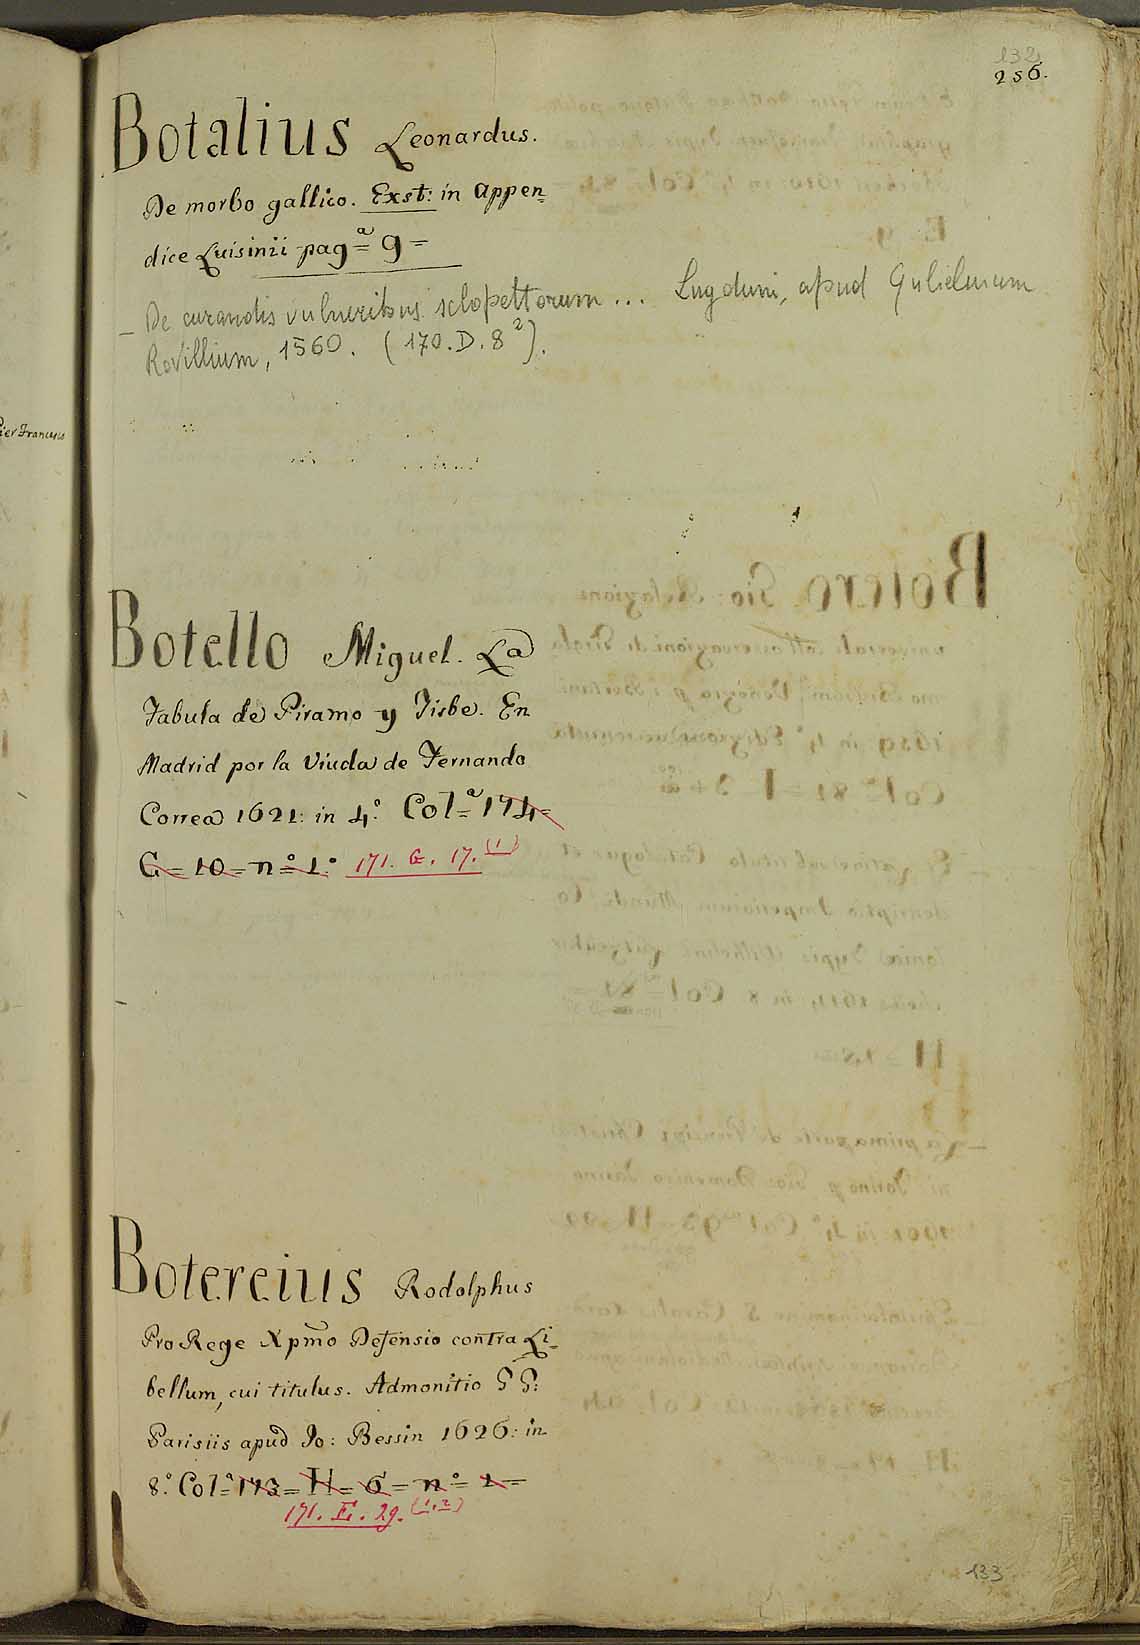 132
256.
Botalius Leonardus.
De morbo gallico. Exst: in appen=
dice Luisinii pag=ª 9=
— De curandis vulneribus sclopettorum ... Lugduni, apud Gulielmum
Rovillium, 1560. (170.D.8²).
Pier Francesco
Botello Miguel. La
Fabula de Piramo y Tisbe. En
Madrid por la Viuda de Fernando
Correa 1621: in 4.º Col=ª 174=
G=10=nº=1.º 171. G. 17.(1)
Botereius Rodolphus
Pro Rege Xpmo Defensio contra Li=
bellum, cui titulus. Admonitio G G:
Parisiis apud Jo: Bessin 1626: in
8.º Col=ª 173=H=6=nº=2=
171. E. 29.(1,2)
133